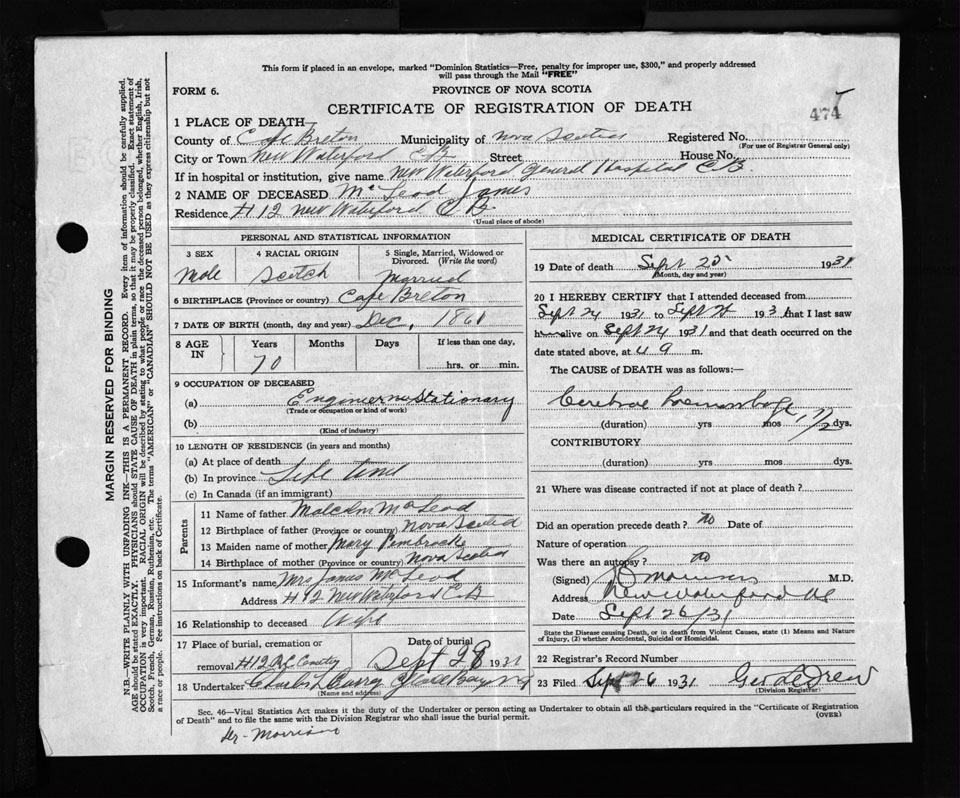 This form if placed in an envelope, marked "Dominion Statistics—Free, penalty for improper use, $300," and properly addressed
will pass through the Mail "FREE"
FORM 6.
PROVINCE OF NOVA SCOTIA
474
CERTIFICATE OF REGISTRATION OF DEATH
1 PLACE OF DEATH
County of Cape Breton Municipality of Nova Scotia Registered No.
(For use of Registrar General only)
City or Town New Waterford CB Street House No.
If in hospital or institution, give name New Waterford General Hospital C.B.
2 NAME OF DECEASED McLeod James
Residence #12 New Waterford CB
(Usual place of abode)
PERSONAL AND STATISTICAL INFORMATION
3 SEX 4 RACIAL ORIGIN 5 Single, Married, Widowed or Divorced. (Write the word)
Male Scotch Married
6 BIRTHPLACE (Province or country) Cape Breton
7 DATE OF BIRTH (month, day and year) Dec, 1861
8 AGE IN Years Months Days If less than one day,
70 hrs. or min.
9 OCCUPATION OF DECEASED
(a) Engineer Stationary
(Trade or occupation or kind of work)
(b)
(Kind of industry)
10 LENGTH OF RESIDENCE (in years and months)
(a) At place of death
(b) In province Life time
(c) In Canada (if an immigrant)
Parents
11 Name of father Malcolm McLeod
12 Birthplace of father (Province or country) Nova Scotia
13 Maiden name of mother Mary Pembroke
14 Birthplace of mother (Province or country) Nova Scotia
15 Informant's name Mrs James McLeod
Address #12 New Waterford CB
16 Relationship to deceased Wife
17 Place of burial, cremation or Date of burial
removal #12 R.C. Cemetery Sept 28 1931
18 Undertaker Charles Curry Glace Bay N.S.
(Name and address)
MEDICAL CERTIFICATE OF DEATH
19 Date of death Sept 25 1931
(Month, day and year)
20 I HEREBY CERTIFY that I attended deceased from
Sept 24 1931 to Sept 25 1931 that I last saw
him alive on Sept 24 1931 and that death occurred on
date stated above, at m.
The CAUSE of DEATH was as follows:—
Cerebral Haemorrhage
(duration) yrs mos 1 1/2 dys.
CONTRIBUTORY
(duration) yrs mos dys.
21 Where was disease contracted if not at place of death?
Did an operation precede death? No Date of
Nature of operation
Was there an autopsy? No
(Signed) M.D.
Address New Waterford NS
Date Sept 26/31
State the Disease causing Death, or in death from Violent Causes, state (1) Means and Nature
of Injury, (2) whether Accidental, Suicidal or Homicidal.
22 Registrar's Record Number
23 Filed Sept 26 1931 Geo LeDrew
(Division Registrar)
Sec. 46—Vital Statistics Act makes it the duty of the Undertaker or person acting as Undertaker to obtain all the particulars required in the "Certificate of Registration
of Death" and to file the same with the Division Registrar who shall issue the burial permit.
(OVER)
Dr- Morrison
MARGIN RESERVED FOR BINDING
N.B.—WRITE PLAINLY WITH UNFADING INK—THIS IS A PERMANENT RECORD. Every item of information should be carefully supplied.
AGE should be stated EXACTLY. PHYSICIANS should STATE CAUSE OF DEATH in plain terms, so that it may be properly classified. Exact statement of
OCCUPATION is very important. RACIAL ORIGIN will be described by stating to what people or race the deceased person belonged, whether English, Irish,
Scotch, French, German, Russian, Ruthenian, etc. The terms "AMERICAN" or "CANADIAN" SHOULD NOT BE USED as they express citizenship but not
a race or people. See instructions on back of Certificate.